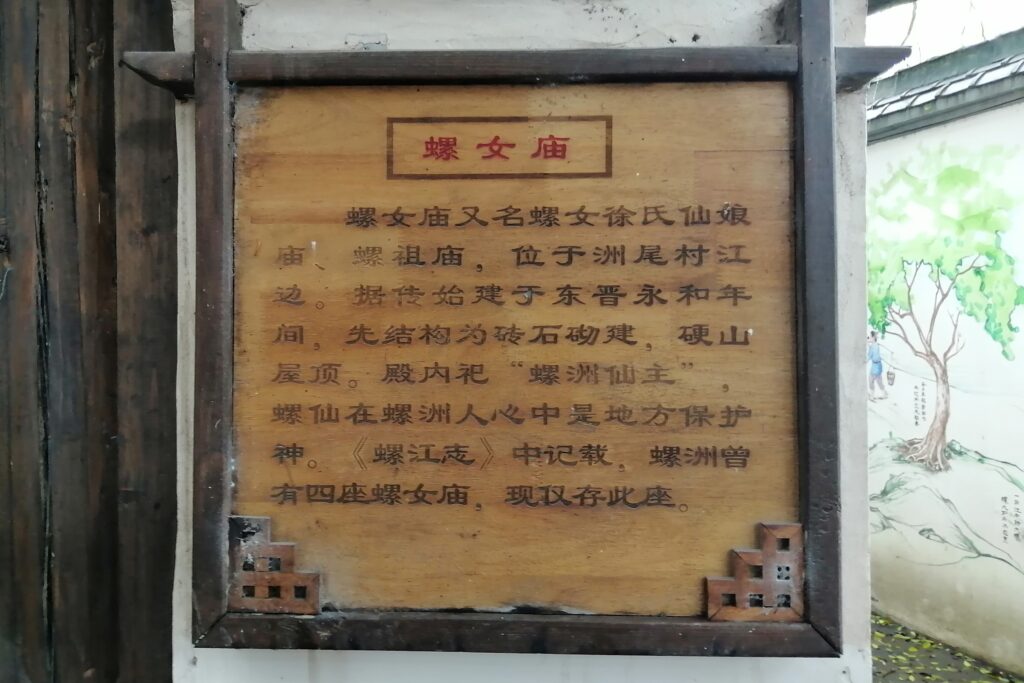 螺女庙
螺女庙又名螺女徐氏仙娘
庙、螺祖庙，位于洲尾村江
边。据传始建于东晋永和年
间，先结构为砖石砌建，硬山
屋顶。殿内祀“螺洲仙主”，
螺仙在螺洲人心中是地方保护
神。《螺江志》中记载，螺洲曾
有四座螺女庙，现仅存此座。